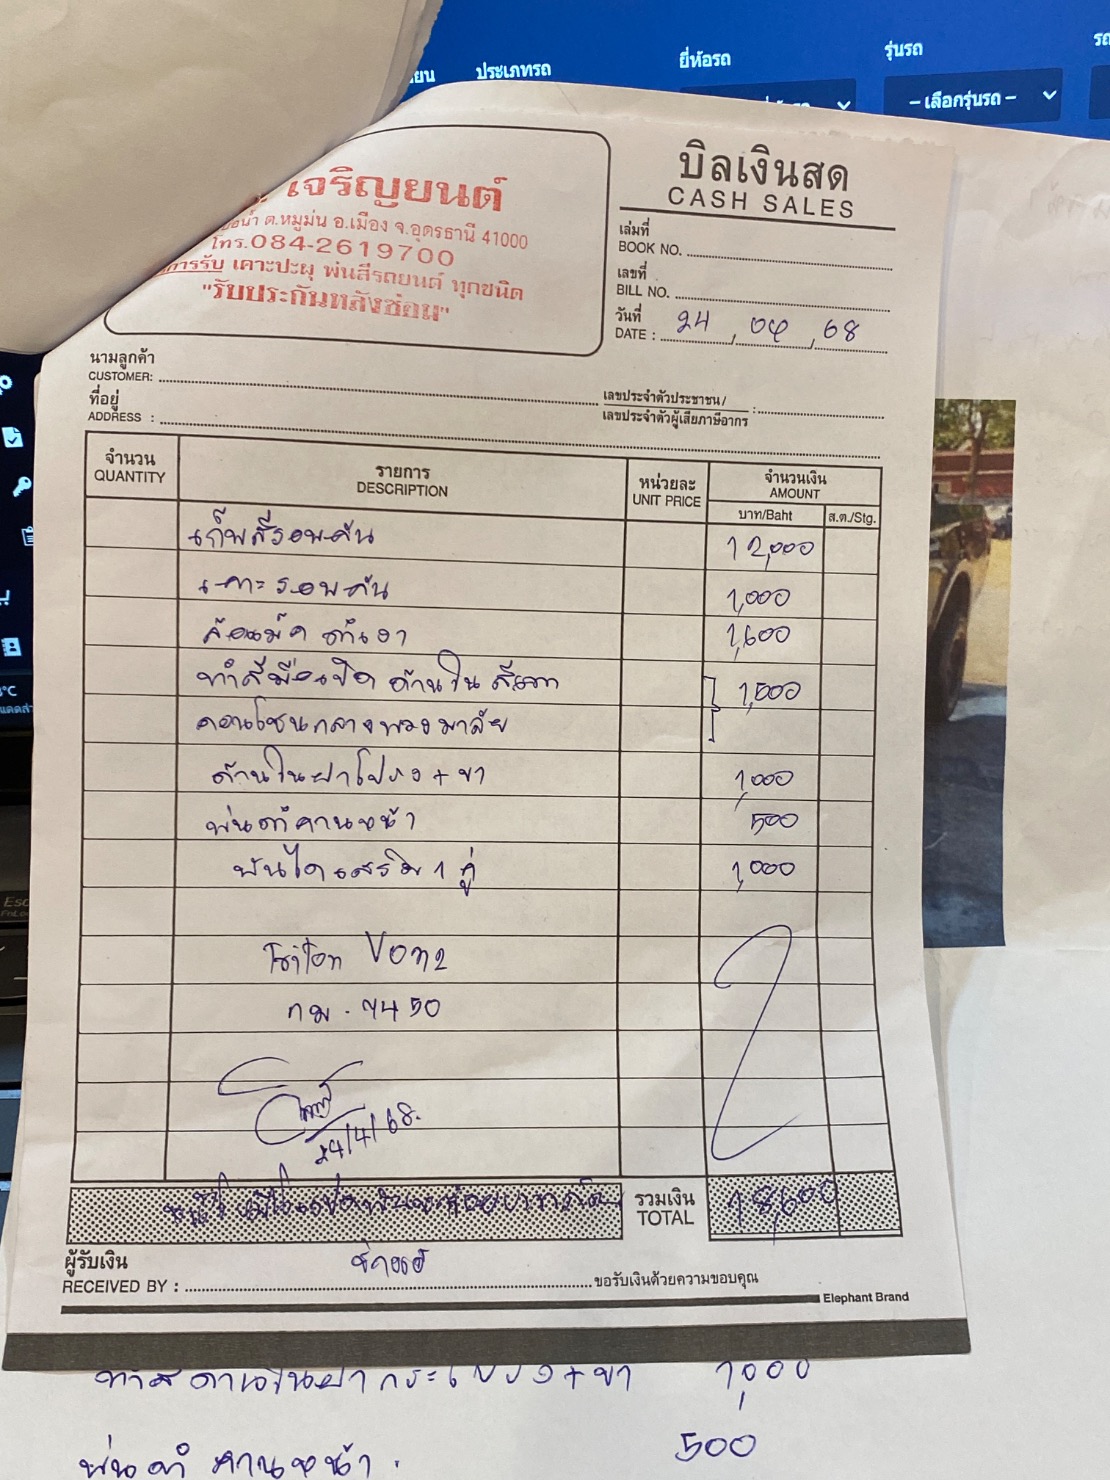 ประเภทรถ
ยี่ห้อรถ
รุ่นรถ
– เลือกรุ่นรถ –
เจริญยนต์
ต.หมูม่น อ.เมือง จ.อุดรธานี 41000
โทร.084-2619700
การรับ เคาะปะผุ พ่นสีรถยนต์ ทุกชนิด
"รับประกันหลังซ่อม"
บิลเงินสด
CASH SALES
เล่มที่
BOOK NO.
เลขที่
BILL NO.
วันที่
DATE : 24, 04, 68
นามลูกค้า
CUSTOMER:
ที่อยู่
ADDRESS :
เลขประจำตัวประชาชน/
เลขประจำตัวผู้เสียภาษีอากร :
จำนวน
QUANTITY
รายการ
DESCRIPTION
หน่วยละ
UNIT PRICE
จำนวนเงิน
AMOUNT
บาท/Baht ส.ต./Stg.
เก็บสีรอบคัน 12,000
เคาะรอบคัน 1,000
ล้อแม็ค 1,600
ทำสีมือเปิด ด้านใน 1,500
คอนโซนกลางพวงมาลัย
ด้านในฝาโปรง + ขา 1,000
พ่นดำคานหน้า 500
บันไดเสริม 1 คู่ 1,000
กม. 7450
24/4/68.
รวมเงิน
TOTAL 18,600
ผู้รับเงิน
RECEIVED BY : ขอรับเงินด้วยความขอบคุณ
Elephant Brand
ทำสีด้านในฝากระโปรง + ขา 1,000
พ่นดำ คานหน้า. 500
Esc